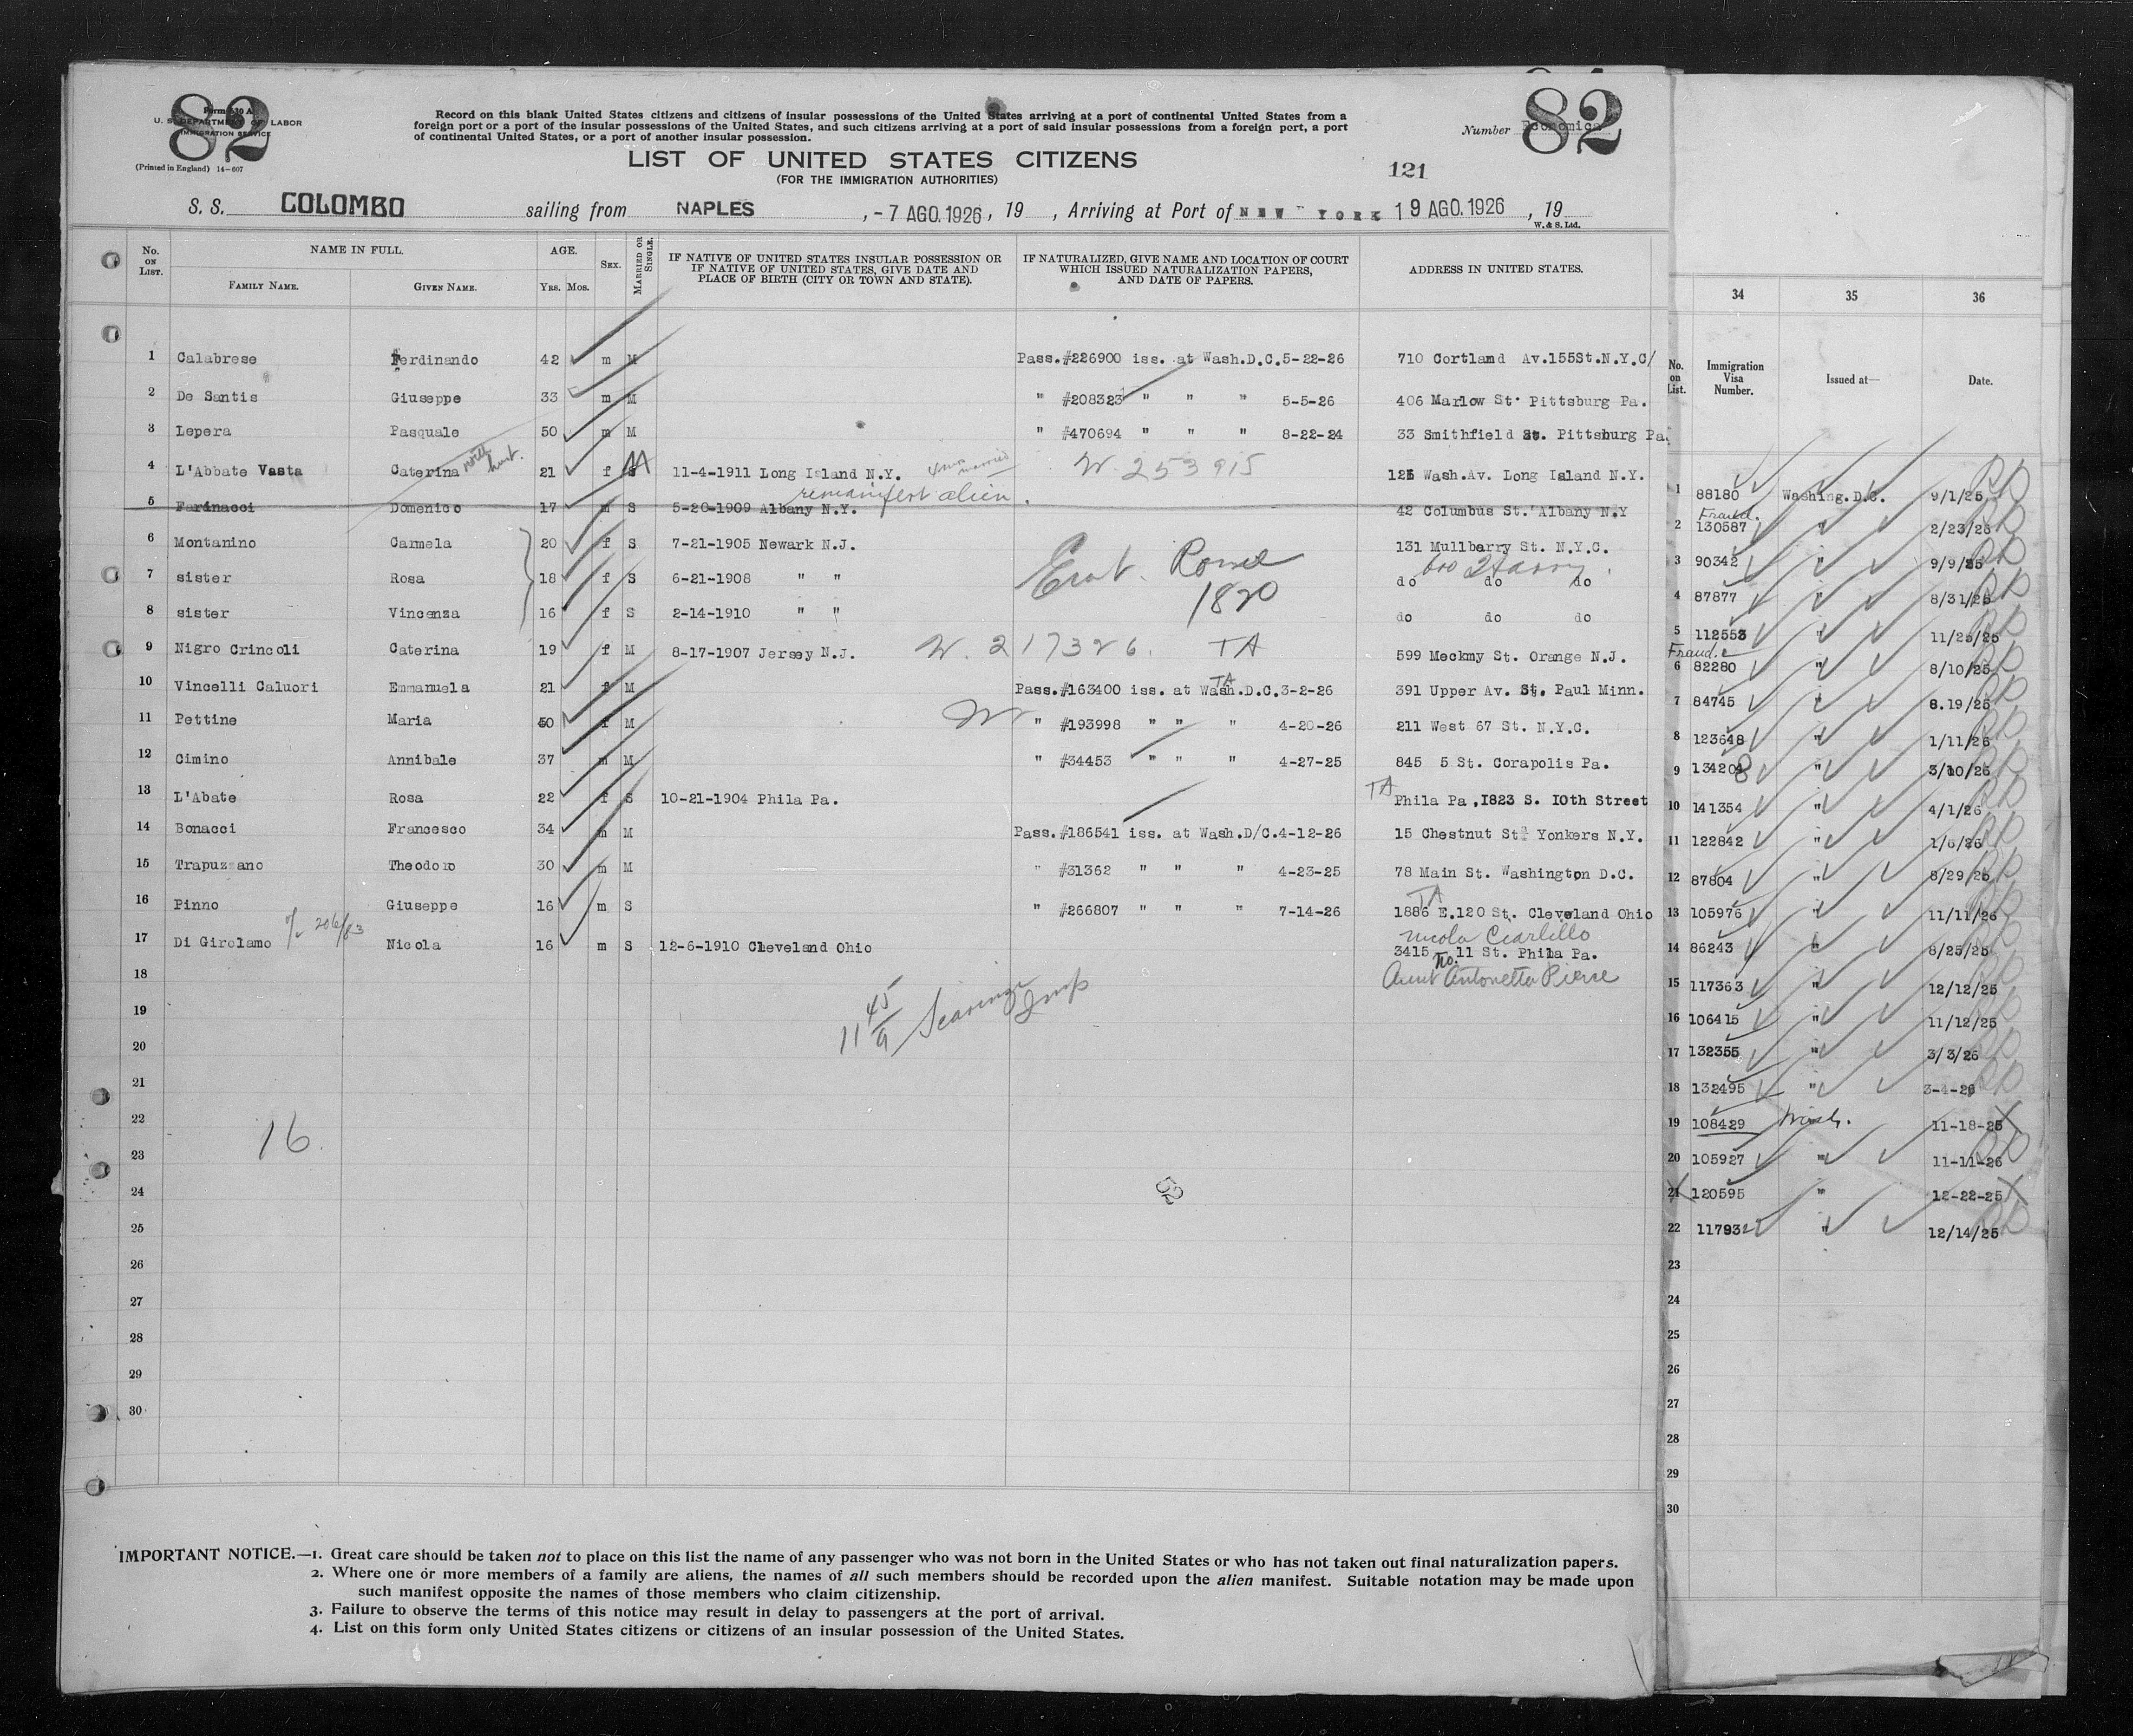 82
Form 630 A
U. S. DEPARTMENT OF LABOR
IMMIGRATION SERVICE
(Printed in England) 14-607
Record on this blank United States citizens and citizens of insular possessions of the United States arriving at a port of continental United States from a
foreign port or a port of the insular possessions of the United States, and such citizens arriving at a port of said insular possessions from a foreign port, a port
of continental United States, or a port of another insular possession.
Number Economica 82
LIST OF UNITED STATES CITIZENS
(FOR THE IMMIGRATION AUTHORITIES)
121
S. S. COLOMBO sailing from NAPLES , -7 AGO.1926 , 19 , Arriving at Port of NEW YORK 19 AGO.1926 , 19
W. & S. Ltd.
No. on List. NAME IN FULL. FAMILY NAME. GIVEN NAME. AGE. YRS. MOS. SEX. MARRIED OR SINGLE. IF NATIVE OF UNITED STATES INSULAR POSSESSION OR IF NATIVE OF UNITED STATES, GIVE DATE AND PLACE OF BIRTH (CITY OR TOWN AND STATE). IF NATURALIZED, GIVE NAME AND LOCATION OF COURT WHICH ISSUED NATURALIZATION PAPERS, AND DATE OF PAPERS. ADDRESS IN UNITED STATES.
1 Calabrese Ferdinando 42 m M Pass.#226900 iss. at Wash.D.C.5-22-26 710 Cortland Av.155St.N.Y.C/
2 De Santis Giuseppe 33 m M " #208323 " " " 5-5-26 406 Marlow St. Pittsburg Pa.
3 Lepera Pasquale 50 m M " #470694 " " " 8-22-24 33 Smithfield St. Pittsburg Pa.
4 L'Abbate Vasta Caterina 21 f M 11-4-1911 Long Island N.Y. W. 253915 Wash.Av. Long Island N.Y.
remanifest alien.
5 Farinacci Domenico 17 m S 5-20-1909 Albany N.Y. 42 Columbus St. Albany N.Y
6 Montanino Carmela 20 f S 7-21-1905 Newark N.J. 131 Mullberry St. N.Y.C.
7 sister Rosa 18 f S 6-21-1908 " " Rome do do do
8 sister Vincenza 16 f S 2-14-1910 " " 1820 do do do
9 Nigro Crincoli Caterina 19 f M 8-17-1907 Jersey N.J. W. 217326. TA 599 Meckmy St. Orange N.J.
10 Vincelli Caluori Emmanuela 21 f M Pass.#163400 iss. at Wash.D.C.3-2-26 TA 391 Upper Av. St. Paul Minn.
11 Pettine Maria 50 f M W " #193998 " " " 4-20-26 211 West 67 St. N.Y.C.
12 Cimino Annibale 37 m M " #34453 " " " 4-27-25 845 5 St. Corapolis Pa.
13 L'Abate Rosa 22 f S 10-21-1904 Phila Pa. TA Phila Pa.,1823 S. 10th Street
14 Bonacci Francesco 34 m M Pass.#186541 iss. at Wash.D/C.4-12-26 15 Chestnut St. Yonkers N.Y.
15 Trapuzzano Theodoro 30 m M " #31362 " " " 4-23-25 78 Main St. Washington D.C.
TA
16 Pinno Giuseppe 16 m S " #266807 " " " 7-14-26 1886 E.120 St. Cleveland Ohio
Nicola Ciarlillo
17 Di Girolamo Nicola 16 m S 12-6-1910 Cleveland Ohio 3415 No. 11 St. Phila Pa.
18 Aunt Antonetta Pierre
19
20
21
22
16.
23
24
52
25
26
27
28
29
30
IMPORTANT NOTICE.—1. Great care should be taken not to place on this list the name of any passenger who was not born in the United States or who has not taken out final naturalization papers.
2. Where one or more members of a family are aliens, the names of all such members should be recorded upon the alien manifest. Suitable notation may be made upon
such manifest opposite the names of those members who claim citizenship.
3. Failure to observe the terms of this notice may result in delay to passengers at the port of arrival.
4. List on this form only United States citizens or citizens of an insular possession of the United States.
34 35 36
No. on List. Immigration Visa Number. Issued at— Date.
1 88180 Washing.D.C. 9/1/25
2 130587 " 2/23/26
3 90342 " 9/9/25
4 87877 " 8/31/25
5 112553 " 11/25/25
6 82280 " 8/10/25
7 84745 " 8.19/25
8 123648 " 1/11/26
9 134208 " 3/10/26
10 141354 " 4/1/26
11 122842 " 1/6/26
12 87804 " 8/29/25
13 105976 " 11/11/26
14 86243 " 8/25/25
15 117363 " 12/12/25
16 106415 " 11/12/25
17 132355 " 3/3/26
18 132495 " 3-4-26
19 108429 Wash. 11-18-25
20 105927 " 11-11-26
21 120595 " 12-22-25
22 117932 " 12/14/25
23
24
25
26
27
28
29
30